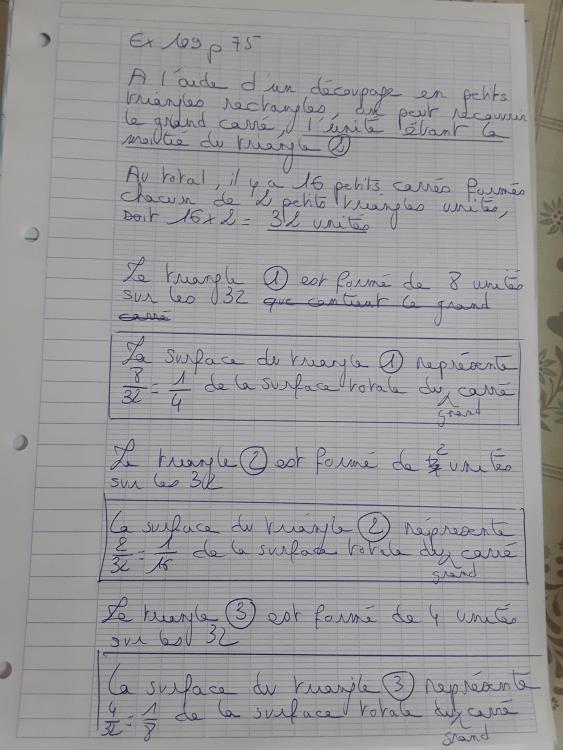 Ex 109 p 75
A l'aide d'un découpage en petits
triangles rectangles, on peut recouvrir
le grand carré, l'unité étant la
moitié du triangle ②
Au total, il y a 16 petits carrés formés
chacun de 2 petits triangles unités,
soit 16 x 2 = 32 unités
Le triangle ① est formé de 8 unités
sur les 32 que contient le grand
carré
La surface du triangle ① représente
8/32 = 1/4 de la surface totale du carré
grand
Le triangle ② est formé de 2 unités
sur les 32
La surface du triangle ② représente
2/32 = 1/16 de la surface totale du carré
grand
Le triangle ③ est formé de 4 unités
sur les 32
La surface du triangle ③ représente
4/32 = 1/8 de la surface totale du carré
grand